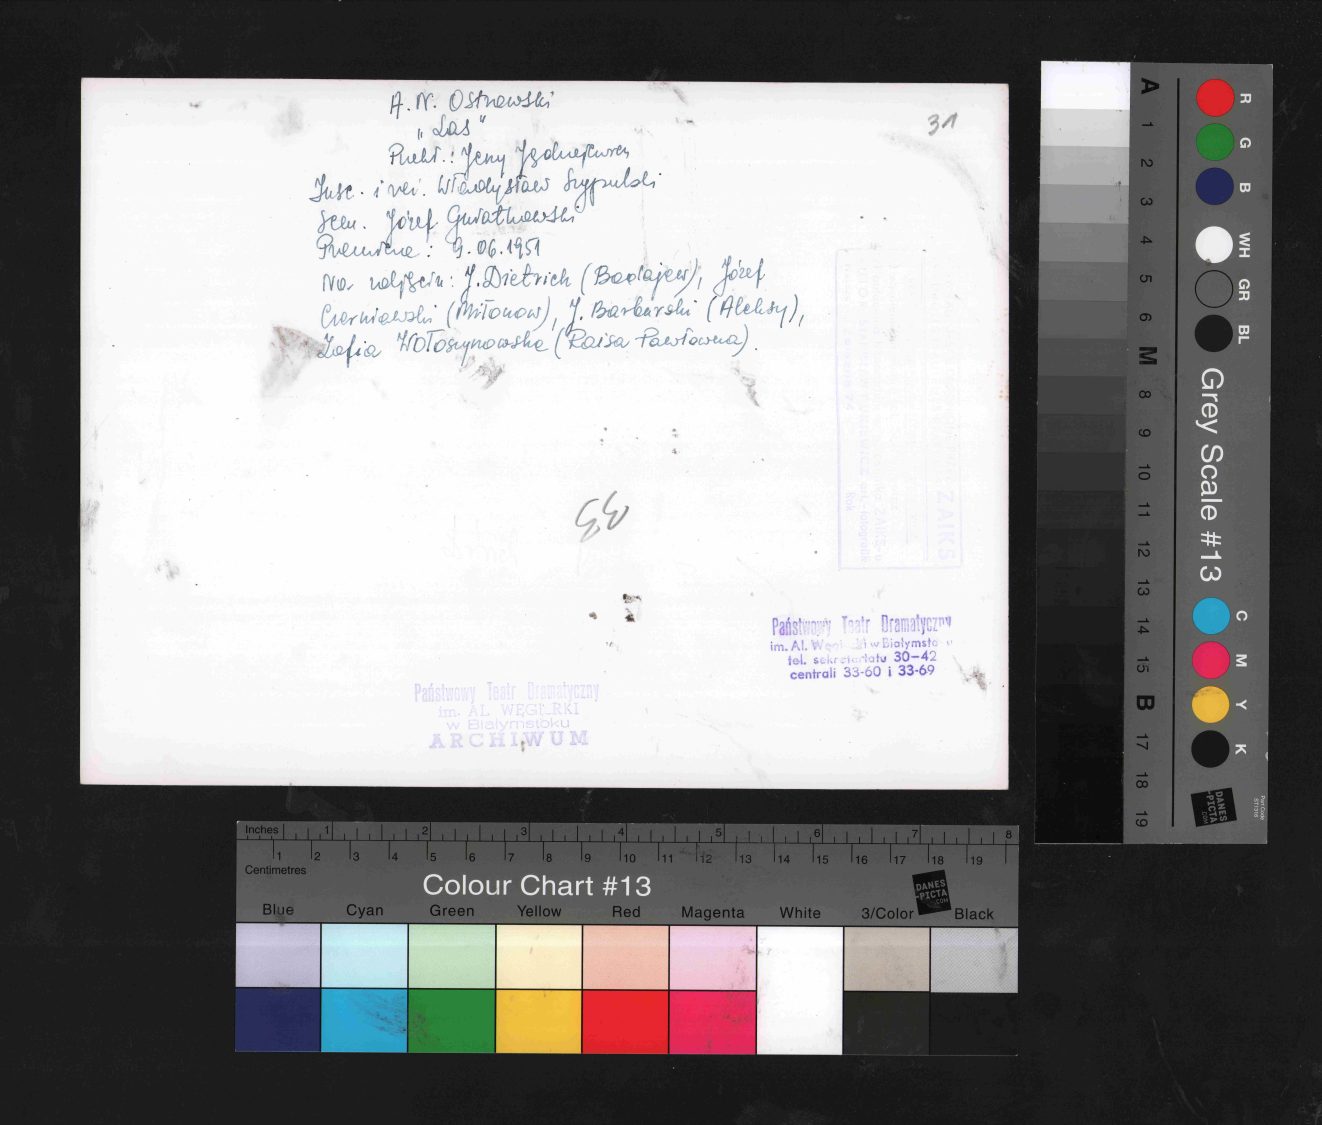 A. N. Ostrowski
"Las"
Przekł.: Jerzy Jędrzejewicz
Insc. i reż. Władysław Szypulski
Scen. Józef Gwiatkowski
Premiera: 9.06.1951
Na zdjęciu: J. Dietrich (Badajew), Józef
Czerniawski (Miłonow), J. Barburski (Aleksy),
Zofia Wołoszynowska (Raisa Pawłowna).
31
33
ZAIKS
Rok
Państwowy Teatr Dramatyczny
im. Al. Węgierki w Białymstoku
tel. sekretariatu 30-42
centrali 33-60 i 33-69
Państwowy Teatr Dramatyczny
im. AL WĘGIERKI
w Białymstoku
ARCHIWUM
A 1 2 3 4 5 6 M 8 9 10 11 12 13 14 15 B 17 18 19
R G B WH GR BL
Grey Scale #13
C M Y K
DANES
-PICTA
.COM
Inches 1 2 3 4 5 6 7 8
1 2 3 4 5 6 7 8 9 10 11 12 13 14 15 16 17 18 19
Centimetres
Colour Chart #13
DANES
-PICTA
.COM
Blue Cyan Green Yellow Red Magenta White 3/Color Black